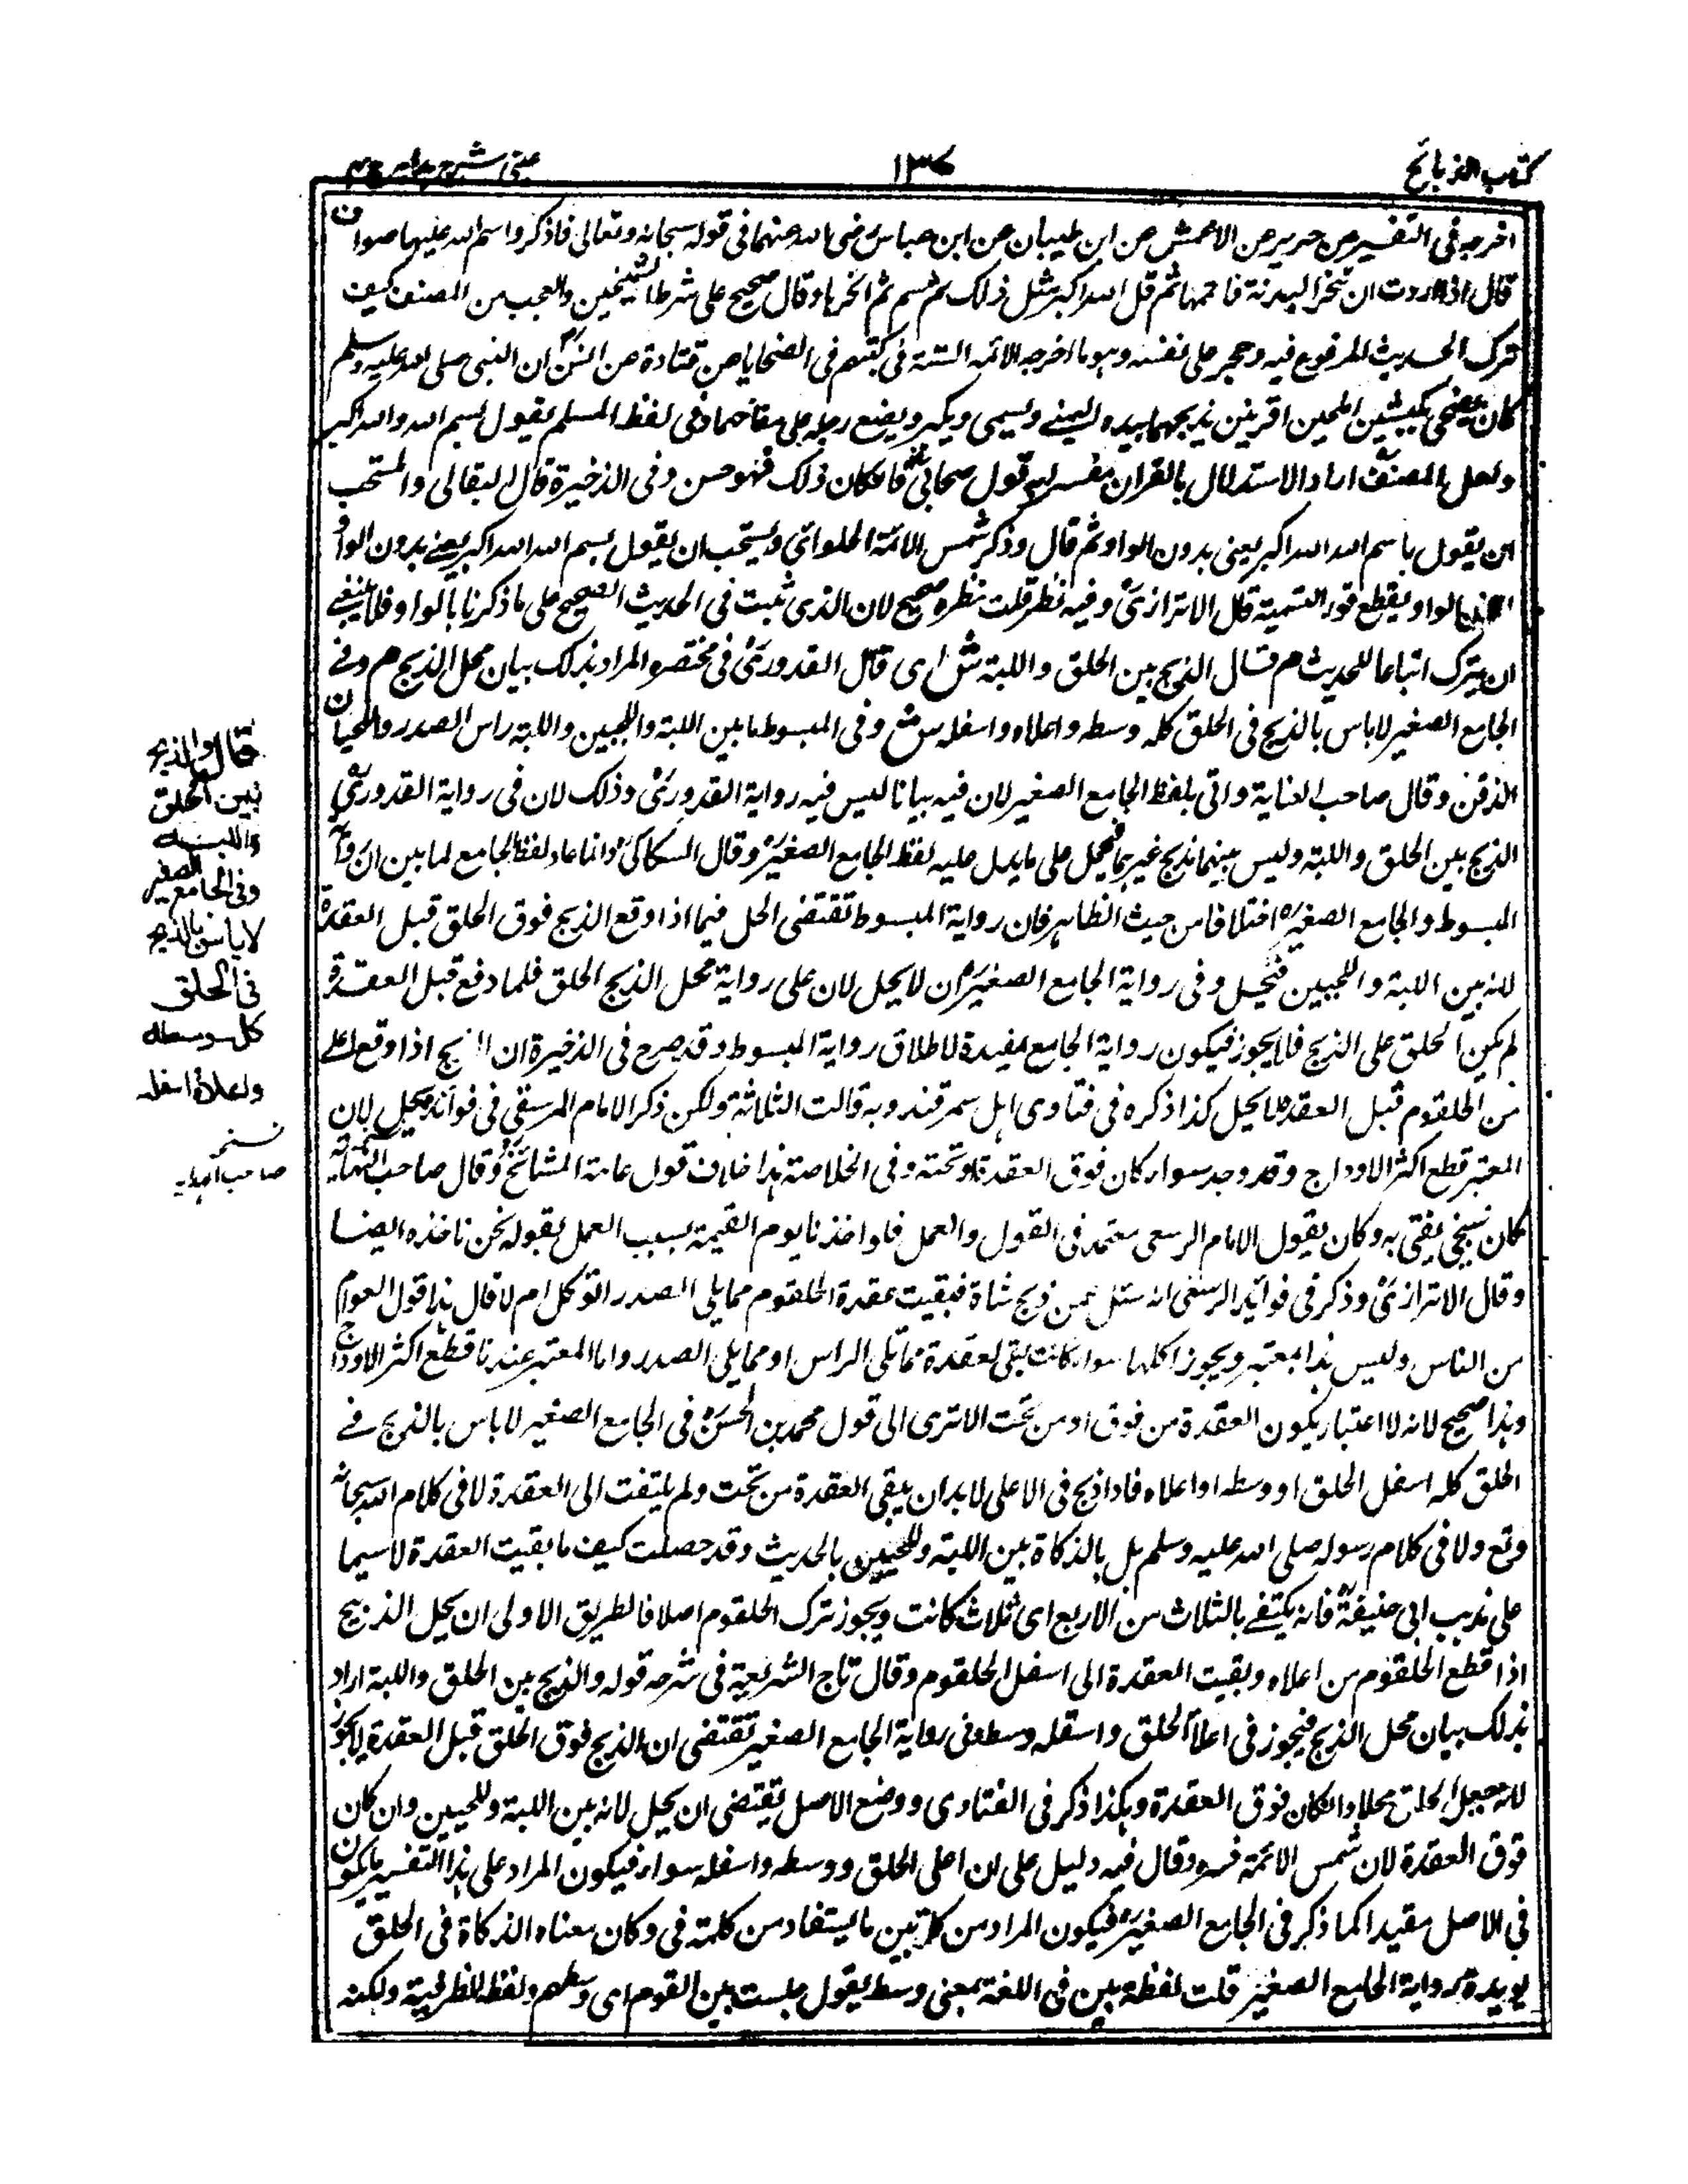 كتاب الذبائح
١٣٧
عينى شرح هدايه ج ٤
اخرجه فى التفسير عن جرير عن الاعمش عن ابن ظبيان عن ابن عباس رضى الله عنهما فى قوله سبحانه وتعالى فاذكروا اسم الله عليها صواف
قال اذا اردت ان تنحر البدنة فاقمها ثم قل الله اكبر مثل ذلك ثم سم ثم انحرها وقال صحيح على شرط الشيخين والعجب من المصنف كيف
ترك الحديث المرفوع فيه وهو ما اخرجه الائمه الستة فى كتبهم فى الضحايا عن قتادة عن انس ان النبى صلى الله عليه وسلم
كان يضحى بكبشين املحين اقرنين يذبحهما بيده اليمنے ويسمى ويكبر ويضع رجله على صفاحهما وفى لفظ المسلم يقول بسم الله والله اكبر
ولعل المصنف اراد الاستدلال بالقران مفسر له قول صحابى فان كان ذلك فهو حسن وفى الذخيرة قال البقالى والمستحب
ان يقول باسم الله الله اكبر يعنى بدون الواو ثم قال وذكر شمس الائمة الحلوائى ويستحب ان يقول بسم الله الله اكبر يعنے بدون الواو
لان بالواو يقطع فور التسمية قال الاترازى وفيه نظر قلت نظره صحيح لان الذى ثبت فى الحديث الصحيح على ما ذكرنا بالواو فلا ينبغے
ان يترك اتباعا للحديث م قال الذبح بين الحلق واللبة ش اى قال القدورى فى مختصره المراد بذلك بيان محل الذبح م وفے
الجامع الصغير لاباس بالذبح فى الحلق كله وسطه واعلاه واسفله ش وفى المبسوط مابين اللبة واللحيين واللبة راس الصدر واللحيان
الذقن وقال صاحب العناية واتى بلفظ الجامع الصغير لان فيه بيانا ليس فيه رواية القدورى وذلك لان فى رواية القدورى
الذبح بين الحلق واللبة وليس بينهما مذبح غيرهما فيحمل على مايدل عليه لفظ الجامع الصغير وقال السكاكى وانما عاد لفظ الجامع لما بين ان رواية
المبسوط والجامع الصغير اختلافا من حيث الظاهر فان رواية المبسوط تقتضى الحل فيما اذا وقع الذبح فوق الحلق قبل العقدة
لانه بين اللبة واللحيين فيحل وفى رواية الجامع الصغير ان لايحل لان على رواية محل الذبح الحلق فلما دفع قبل العقدة
لم يكن الحلق على الذبح فلا يجوز فيكون رواية الجامع مفيدة لاطلاق رواية المبسوط وقد صرح فى الذخيرة ان الذبح اذا وقع اعلے
من الحلقوم قبل العقدة لايحل كذا ذكره فى فتاوى اهل سمرقند وبه قالت الثلاثة ولكن ذكر الامام الرستغنى فى فوائده يحل لان
المعتبر قطع اكثر الاوداج وقد وجد سواء كان فوق العقدة او تحته وفى الخلاصة هذا خلاف قول عامة المشائخ وقال صاحب النهاية
كان شيخى يفتى به وكان يقول الامام الرسعى معتمد فى القول والعمل فلو اخذنا يوم القيمة بسبب العمل بقوله نحن ناخذه ايضا
وقال الاترازى وذكر فى فوائد الرسغنى انه سئل عمن ذبح شاة فبقيت عقدة الحلقوم ممايلى الصدر اتوكل ام لا قال هذا قول العوام
من الناس وليس هذا بمعتبر ويجوز اكلها سواء كانت بقى العقدة مما تلى الراس او ممايلى الصدر واما المعتبر عندنا قطع اكثر الاوداج
وهذا صحيح لانه لا اعتبار بكون العقدة من فوق او من تحت الاترى الى قول محمد بن الحسن فى الجامع الصغير لاباس بالذبح فے
الحلق كله اسفل الحلق او وسطه او اعلاه فاذا ذبح فى الاعلى لابد ان يبقى العقدة من تحت ولم يلتفت الى العقدة لا فى كلام الله سبحانه
وتع ولا فى كلام رسوله صلى الله عليه وسلم بل بالذكاة بين اللبة واللحيين بالحديث وقد حصلت كيف ما بقيت العقدة لاسيما
على مذهب ابى حنيفة فانه يكتفے بالثلاث من الاربع اى ثلاث كانت ويجوز ترك الحلقوم اصلا فالطريق الاولى ان يحل الذبيح
اذا قطع الحلقوم من اعلاه وبقيت العقدة الى اسفل الحلقوم وقال تاج الشريعة فى شرحه قوله والذبح بين الحلق واللبة اراد
بذلك بيان محل الذبح فيجوز فى اعلا الحلق واسفله وسطه وفى رواية الجامع الصغير تقتضى ان الذبح فوق الحلق قبل العقدة لايجوز
لانه جعل الحلق محلا وانكان فوق العقدة وهكذا ذكر فى الفتاوى ووضع الاصل يقتضى ان يحل لانه بين اللبة واللحيين وان كان
فوق العقدة لان شمس الائمة فسره وقال فيه دليل على ان اعلى الحلق ووسطه واسفله سواء فيكون المراد على هذا التفسير مايكون
فى الاصل مقيدا كما ذكر فى الجامع الصغير فيكون المراد من كلمة بين ما يستفاد من كلمة فى وكان معناه الذكاة فى الحلق
يويده رواية الجامع الصغير قلت لفظة بين فى اللغة بمعنى وسط يقول جلست بين القوم اى وسطهم ولفظ للظرفية ولكنه
قال والذبح
بين الحلق
واللبة
وفى الجامع الصغير
لاباس بالذبح
فى الحلق
كله وسطه
واعلاه واسفله
نسخه
صاحب الهدايه